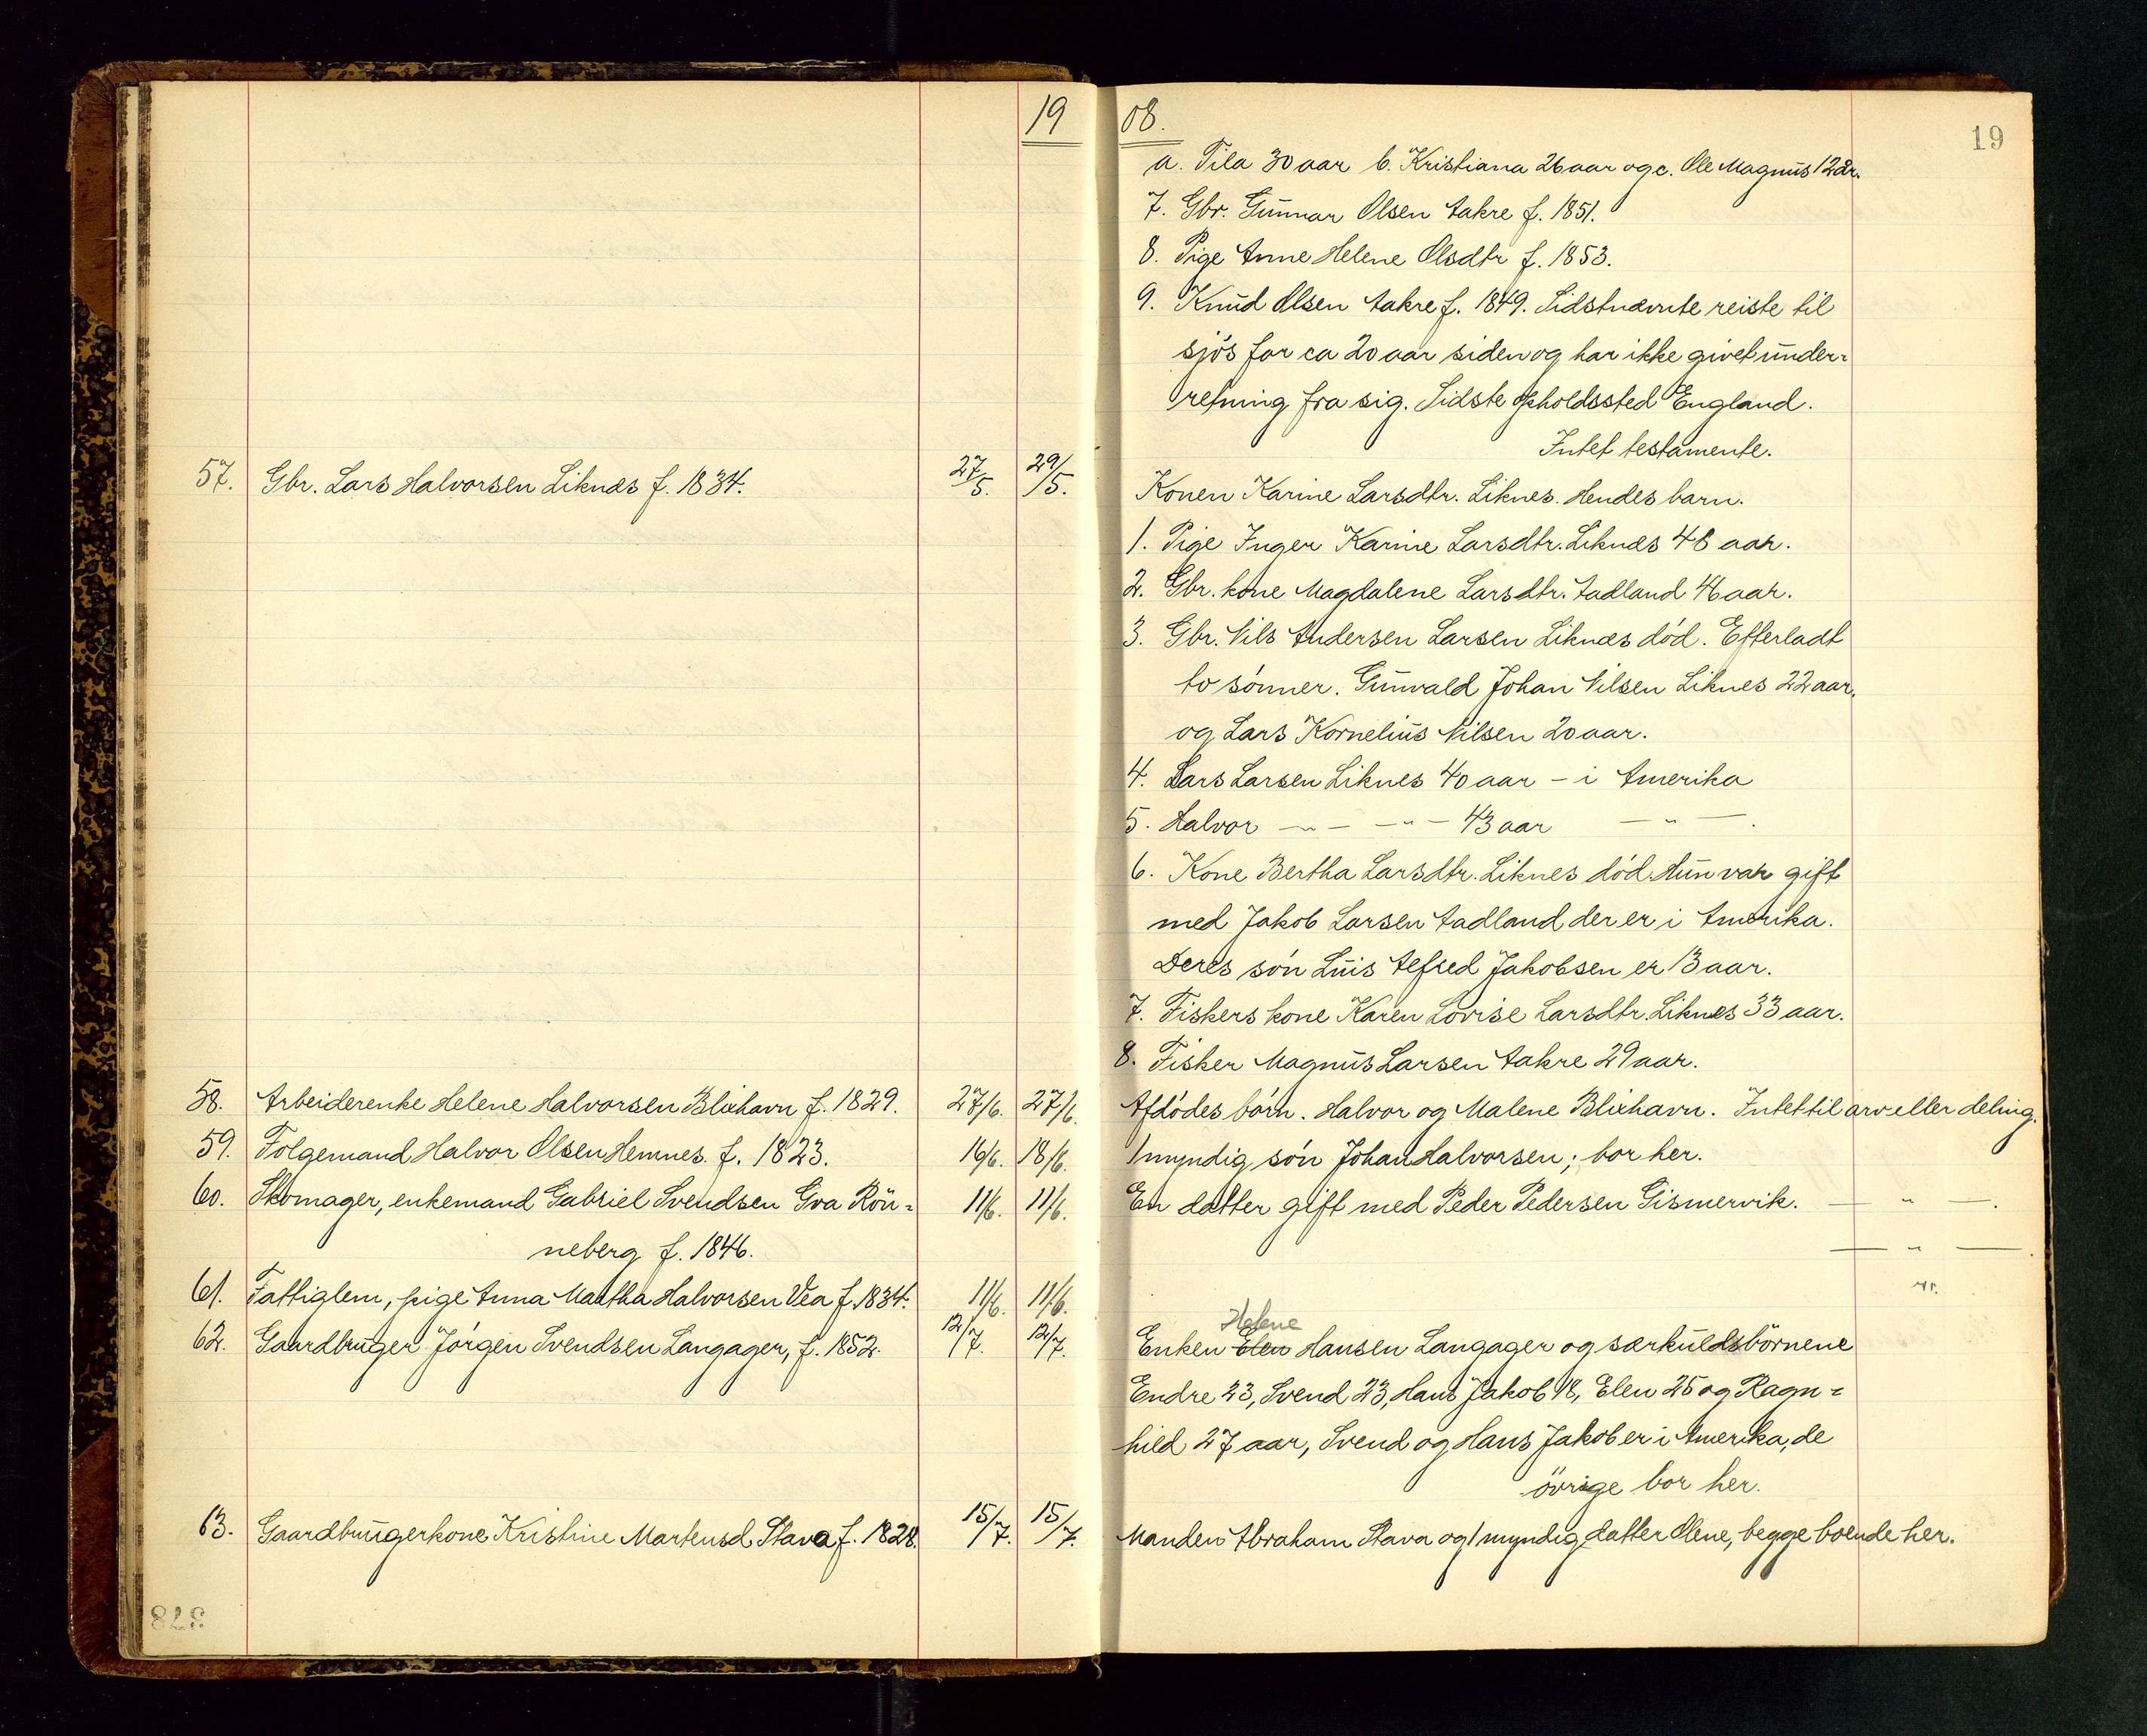 1908.
19
a. Tila 30 aar b. Kristiana 26 aar og c. Ole Magnus 12 år.
7. Gbr. Gunnar Olsen Aakre f. 1851.
8. Pige Anne Helene Olsdtr f. 1853.
9. Knud Olsen Aakre f. 1849. Sidstnævnte reiste til
sjös for ca 20 aar siden og har ikke givet under-
retning fra sig. Sidste opholdssted England.
Intet testamente.
57. Gbr. Lars Halvorsen Liknæs f. 1834. 27/5. 29/5.
Konen Karine Larsdtr. Liknes. Hendes barn.
1. Pige Inger Karine Larsdtr. Liknæs 48 aar.
2. Gbr. kone Magdalene Larsdtr. Aadland 46 aar.
3. Gbr. Nils Andersen Larsen Liknæs död. Efterladt
to sönner. Gunvald Johan Nilsen Liknes 22 aar,
og Lars Kornelius Nilsen 20 aar.
4. Lars Larsen Liknes 40 aar – i Amerika
5. Halvor — " — — " — 43 aar — " —.
6. Kone Bertha Larsdtr. Liknes död. Hun var gift
med Jakob Larsen Aadland der er i Amerika.
Deres sön Luis Alfred Jakobsen er 13 aar.
7. Fiskers kone Karen Lovise Larsdtr. Liknes 33 aar.
8. Fisker Magnus Larsen Aakre 29 aar.
58. Arbeiderenke Helene Halvorsen Blixhavn f. 1829. 27/6. 27/6. Afdödes börn. Halvor og Malene Blixhavn. Intet til arv eller deling.
59. Folgemand Halvor Olsen Hemnes. f. 1823. 16/6. 18/6. 1 myndig sön Johan Halvorsen; bor her.
60. Skomager, enkemand Gabriel Svendsen Gva Rön- 11/6. 11/6. En datter gift med Peder Pedersen Gismervik. — " —.
neberg f. 1846. — " —.
61. Fattiglem, pige Anna Martha Halvorsen Vea f. 1834. 11/6. 11/6.
Helene
62. Gaardbruger Jörgen Svendsen Langager, f. 1852. 12/7. 12/7. Enken Elen Hansen Langager og særkuldsbörnene
Endre 23, Svend 23, Hans Jakob 18, Elen 25 og Ragn-
hild 27 aar, Svend og Hans Jakob er i Amerika, de
övrige bor her.
63. Gaardbrugerkone Kristine Martensd. Stava f. 1828. 15/7. 15/7. Manden Abraham Stava og 1 myndig datter Olene, begge boende her.